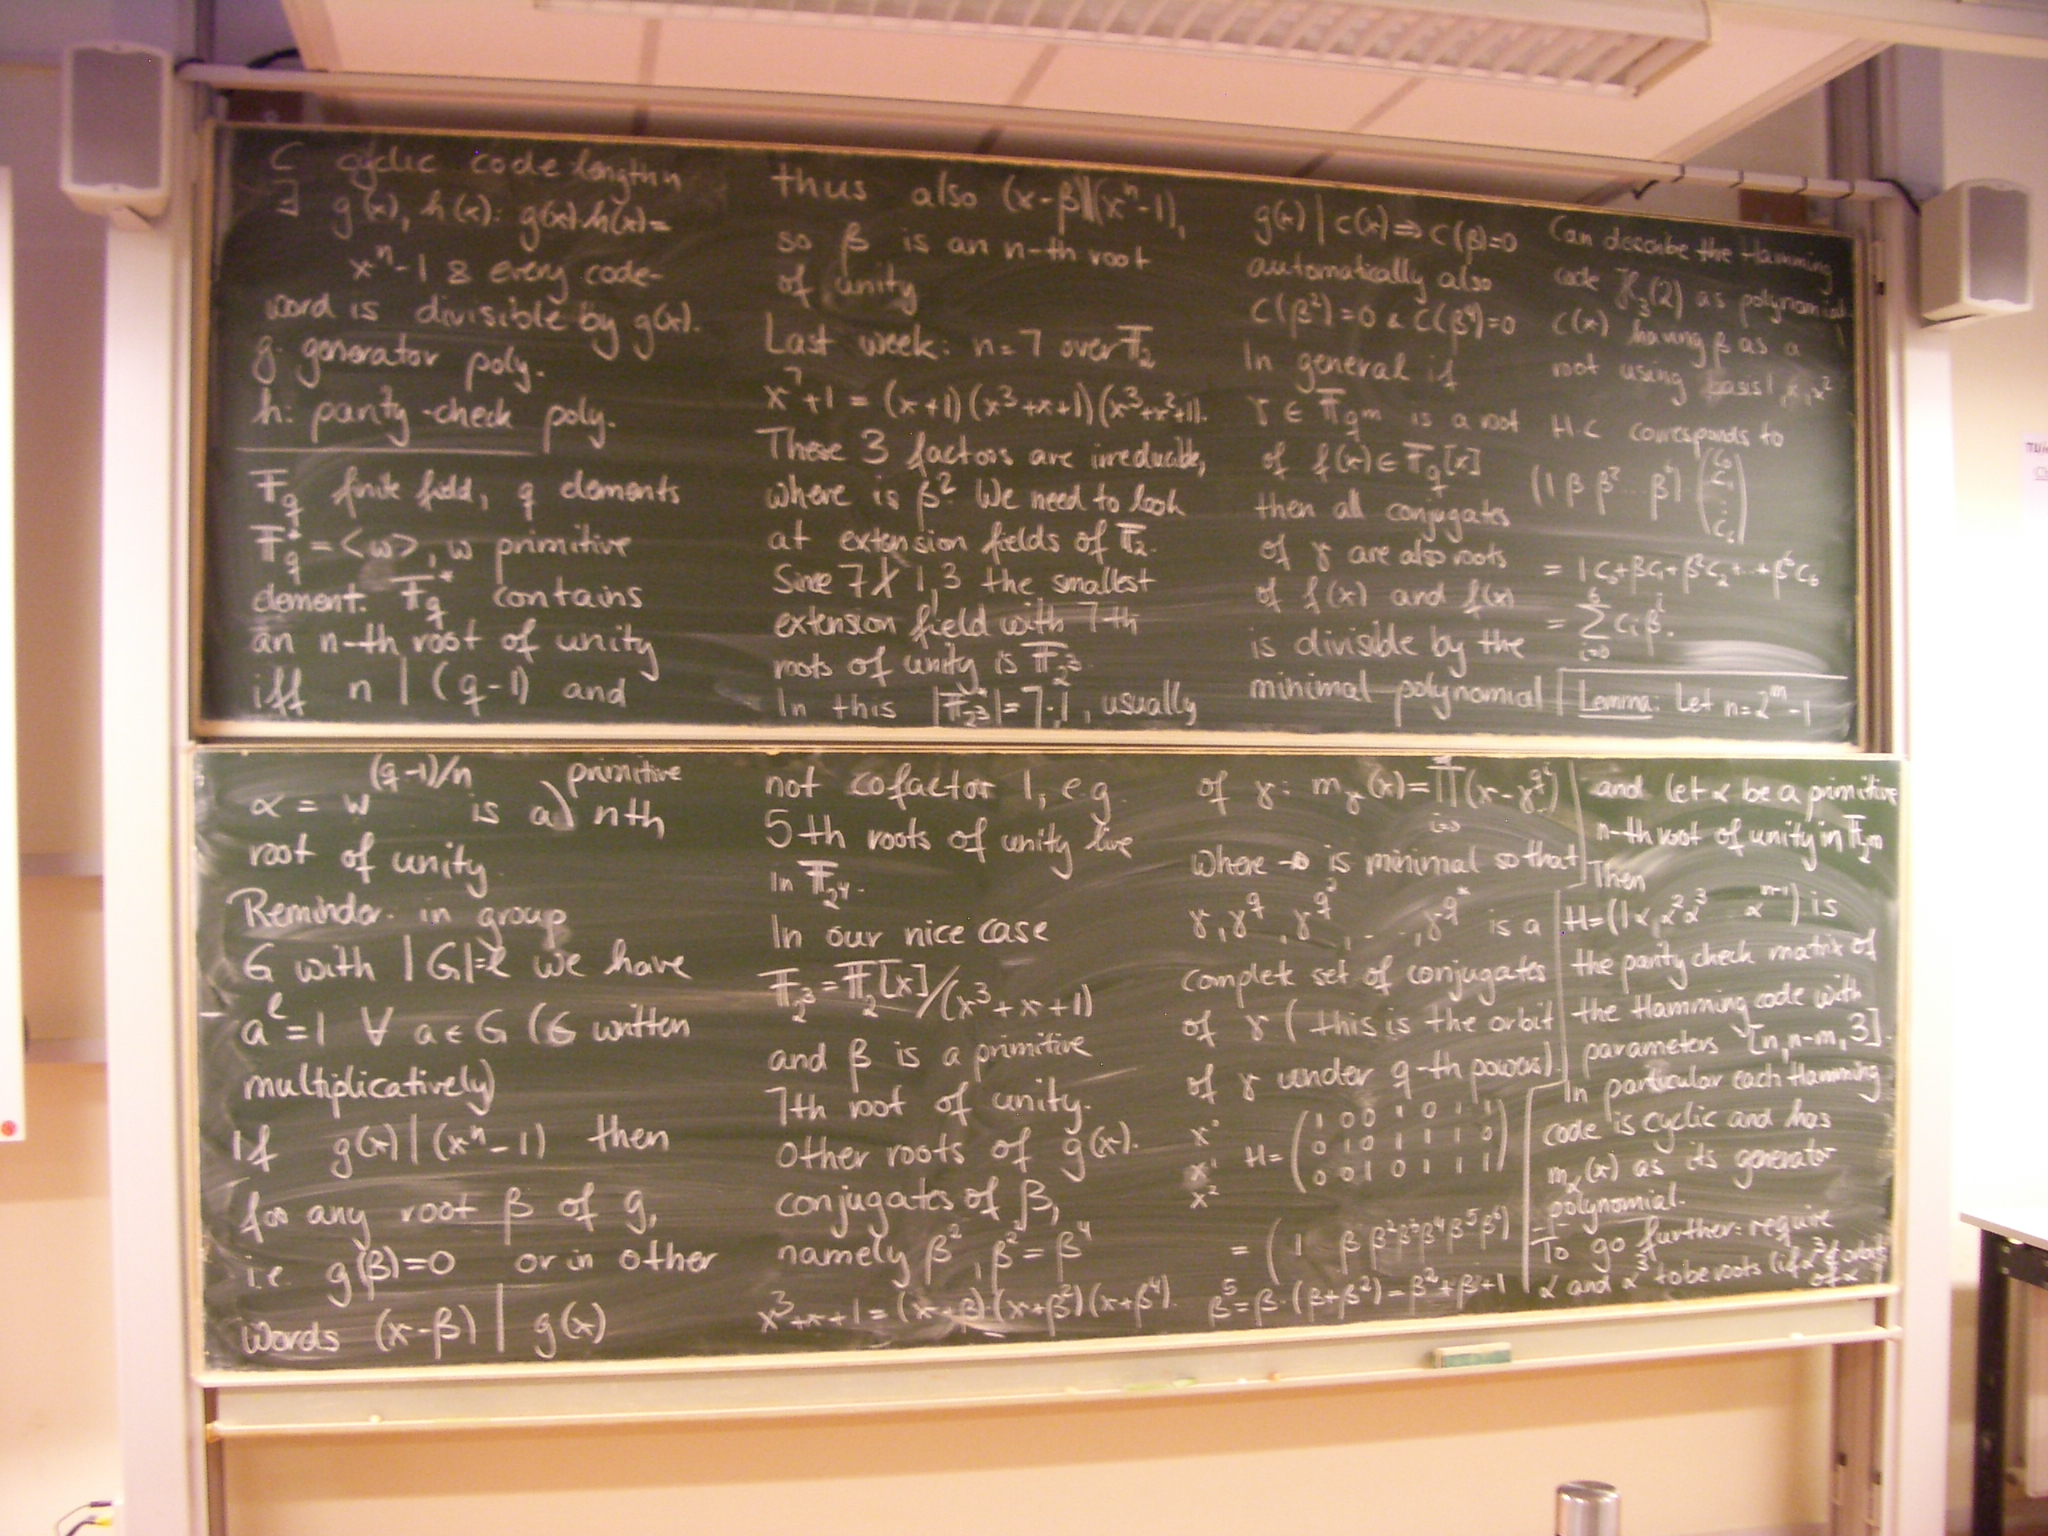 C cyclic code length n
∃ g(x), h(x): g(x)·h(x)=
xⁿ-1 & every code-
word is divisible by g(x).
g: generator poly.
h: parity-check poly.
𝔽_q finite field, q elements
𝔽_q* = <w>, w primitive
element. 𝔽_q* contains
an n-th root of unity
iff n | (q-1) and
α = w^((q-1)/n) is a primitive nth
root of unity.
Reminder: in group
G with |G|=ℓ we have
a^ℓ=1 ∀ a∈G (G written
multiplicatively)
If g(x)|(xⁿ-1) then
for any root β of g,
i.e. g(β)=0 or in other
words (x-β) | g(x)
thus also (x-β)|(xⁿ-1),
so β is an n-th root
of unity
Last week: n=7 over 𝔽₂
x⁷+1 = (x+1)(x³+x+1)(x³+x²+1).
These 3 factors are irreducible,
where is β? We need to look
at extension fields of 𝔽₂.
Since 7∤1,3 the smallest
extension field with 7-th
roots of unity is 𝔽_2³.
In this |𝔽_2³*|=7·1, usually
not cofactor 1, e.g.
5-th roots of unity live
in 𝔽_2⁴.
In our nice case
𝔽_2³=𝔽₂[x]/(x³+x+1)
and β is a primitive
7th root of unity.
other roots of g(x).
conjugates of β,
namely β², β²² = β⁴
x³+x+1 = (x+β)·(x+β²)(x+β⁴).
g(x) | c(x) ⇒ c(β)=0
automatically also
c(β²)=0 & c(β⁴)=0
In general if
γ ∈ 𝔽_q^m is a root
of f(x)∈𝔽_q[x]
then all conjugates
of γ are also roots
of f(x) and f(x)
is divisible by the
minimal polynomial
of γ: m_γ(x)=∏_{i=0}(x-γ^{q^i})
where is minimal so that
γ, γ^q, γ^{q²}, ..., is a
complete set of conjugates
of γ (this is the orbit
of γ under q-th powers).
x⁰ 1 0 0 1 0 1 1
x¹ H= 0 1 0 1 1 1 0
x² 0 0 1 0 1 1 1
= (1 β β² β³ β⁴ β⁵ β⁶)
β⁵=β·(β+β²)=β²+β+1
Can describe the Hamming
code ℋ₃(2) as polynomial
c(x) having β as a
root using basis 1,x,x²
H.C corresponds to
(1 β β² β⁶) (c₀ c₁ ⋮ c₆)
= 1c₀+βc₁+β²c₂+...+β⁶c₆
= ∑_{i=0}^{6} c_i β^i.
Lemma: Let n=2^m-1
and let α be a primitive
n-th root of unity in 𝔽_2^m
Then
H=(1 α, α² α³ α^{n-1}) is
the parity check matrix of
the Hamming code with
parameters [n, n-m, 3].
In particular each Hamming
code is cyclic and has
m_α(x) as its generator
polynomial.
To go further: require
α and α³ to be roots (if α³∉ orbit
of α